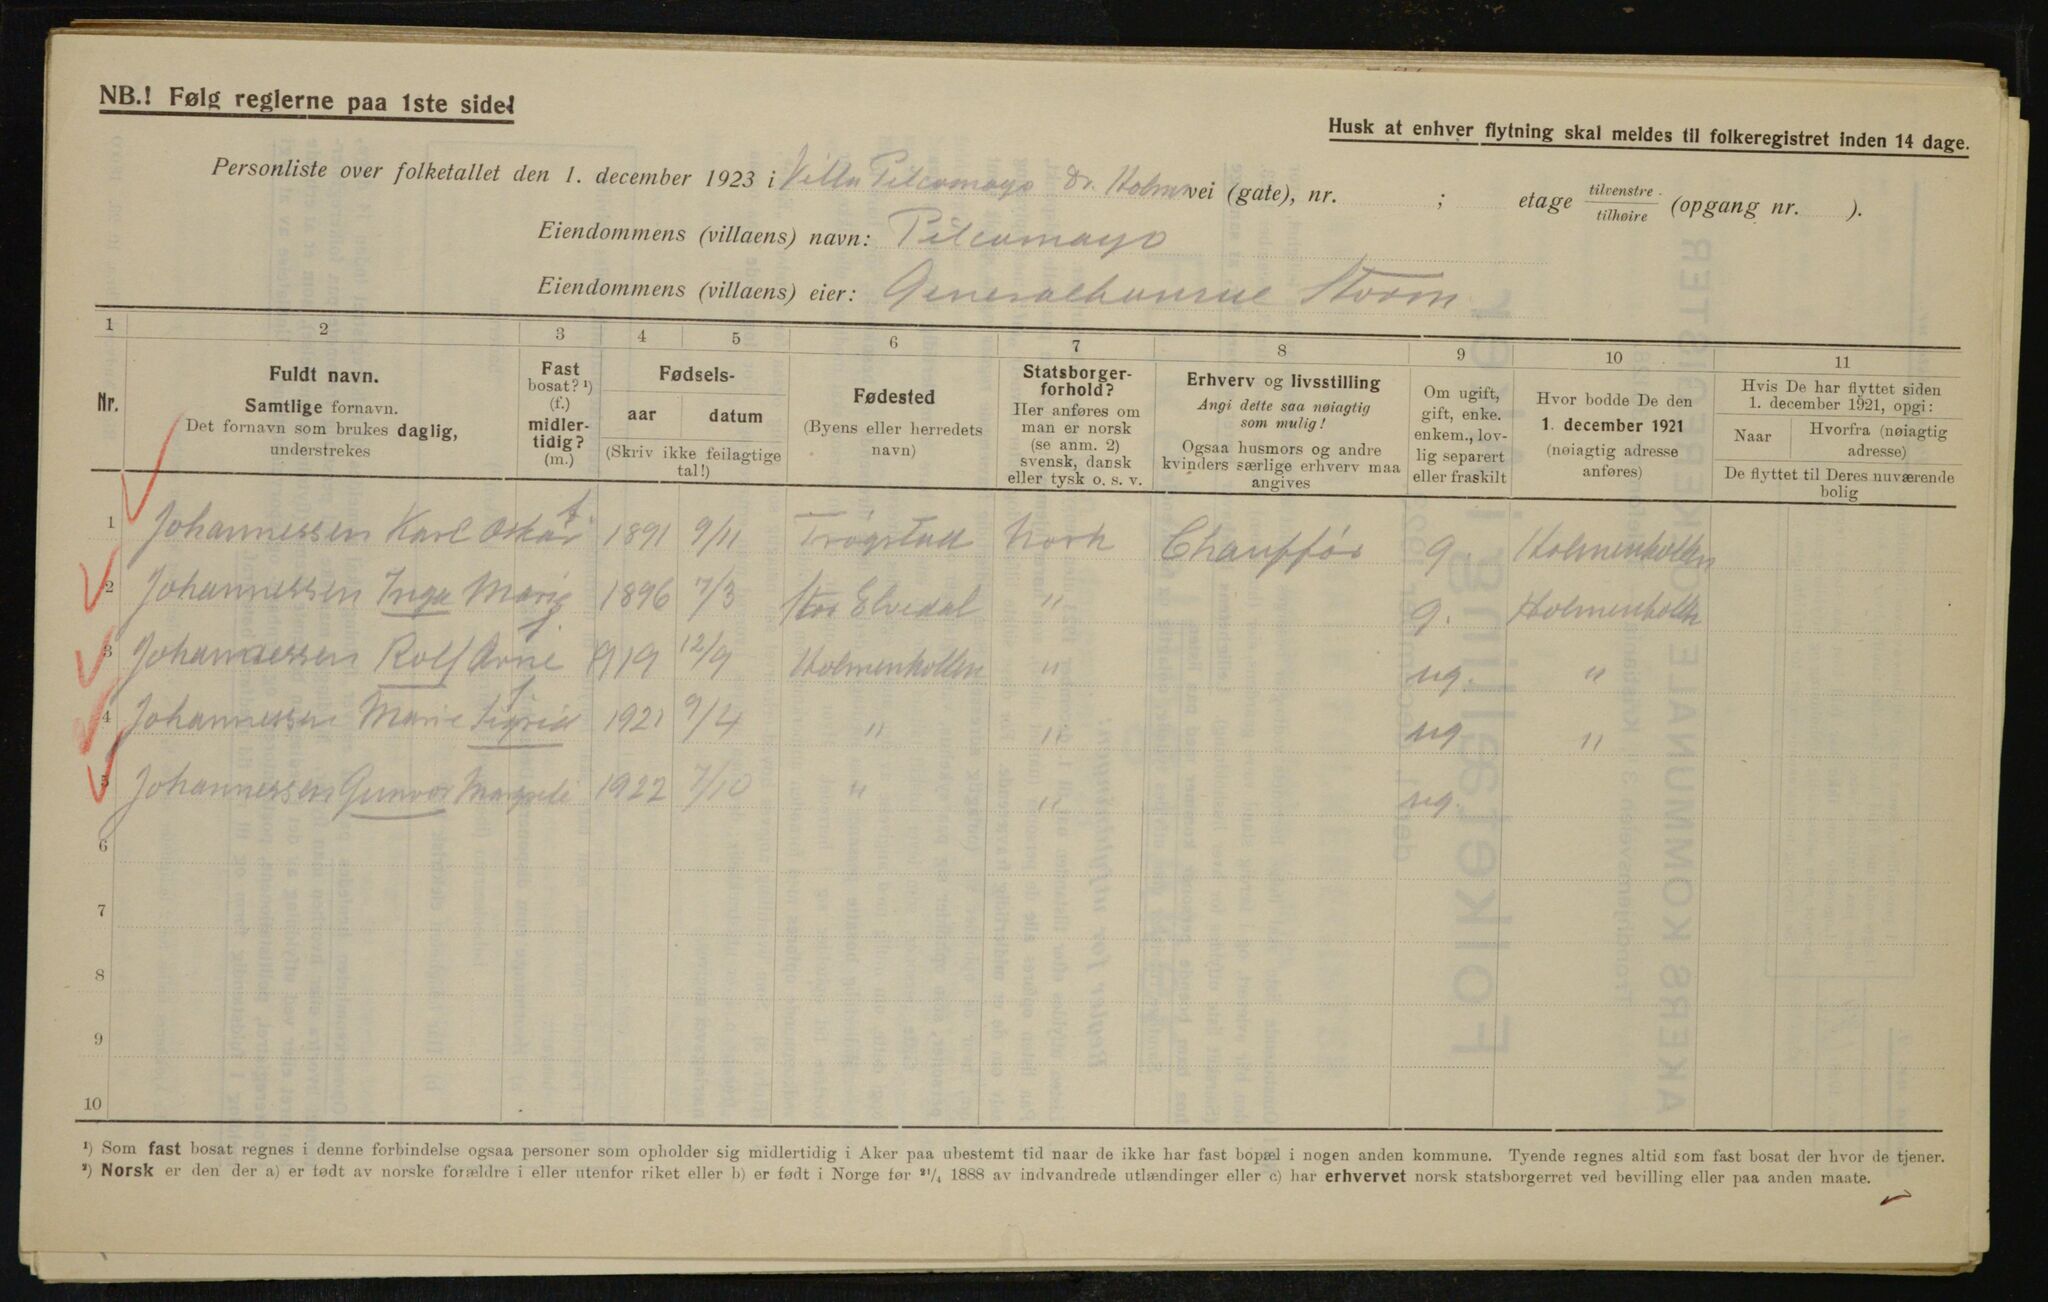 NB.! Følg reglerne paa 1ste side!
Husk at enhver flytning skal meldes til folkeregistret inden 14 dage.
Personliste over folketallet den 1. december 1923 i Villa Pilcomayo Dr. Holms vei (gate), nr. ; etage tilvenstre/tilhøire (opgang nr. ).
Eiendommens (villaens) navn: Pilcomayo
Eiendommens (villaens) eier: Generalkonsul Storm
1 2 3 4 5 6 7 8 9 10 11
Nr.
Fuldt navn.
Samtlige fornavn.
Det fornavn som brukes daglig,
understrekes
Fast
bosat? ¹)
(f.)
midler-
tidig?
(m.)
Fødsels-
aar datum
(Skriv ikke feilagtige
tal!)
Fødested
(Byens eller herredets
navn)
Statsborger-
forhold?
Her anføres om
man er norsk
(se anm. 2)
svensk, dansk
eller tysk o. s. v.
Erhverv og livsstilling
Angi dette saa nøiagtig
som mulig!
Ogsaa husmors og andre
kvinders særlige erhverv maa
angives
Om ugift,
gift, enke.
enkem., lov-
lig separert
eller fraskilt
Hvor bodde De den
1. december 1921
(nøiagtig adresse
anføres)
Hvis De har flyttet siden
1. december 1921, opgi:
Naar Hvorfra (nøiagtig
adresse)
De flyttet til Deres nuværende
bolig
1 Johannessen Karl Oskar f. 1891 9/11 Trøgstad Norsk Chauffør g. Holmenkollen
2 Johannessen Inga Marie 1896 7/3 Stor Elvedal " g. Holmenkollen
3 Johannessen Rolf Arne f 1919 12/9 Holmenkollen " ug. "
4 Johannessen Marie Sigrid 1921 9/4 " " ug. "
5 Johannessen Gunvor Margrete 1922 7/10 " " ug.
6
7
8
9
10
¹) Som fast bosat regnes i denne forbindelse ogsaa personer som opholder sig midlertidig i Aker paa ubestemt tid naar de ikke har fast bopæl i nogen anden kommune. Tyende regnes altid som fast bosat der hvor de tjener.
²) Norsk er den der a) er født av norske forældre i eller utenfor riket eller b) er født i Norge før ²¹/₄ 1888 av indvandrede utlændinger eller c) har erhvervet norsk statsborgerret ved bevilling eller paa anden maate.